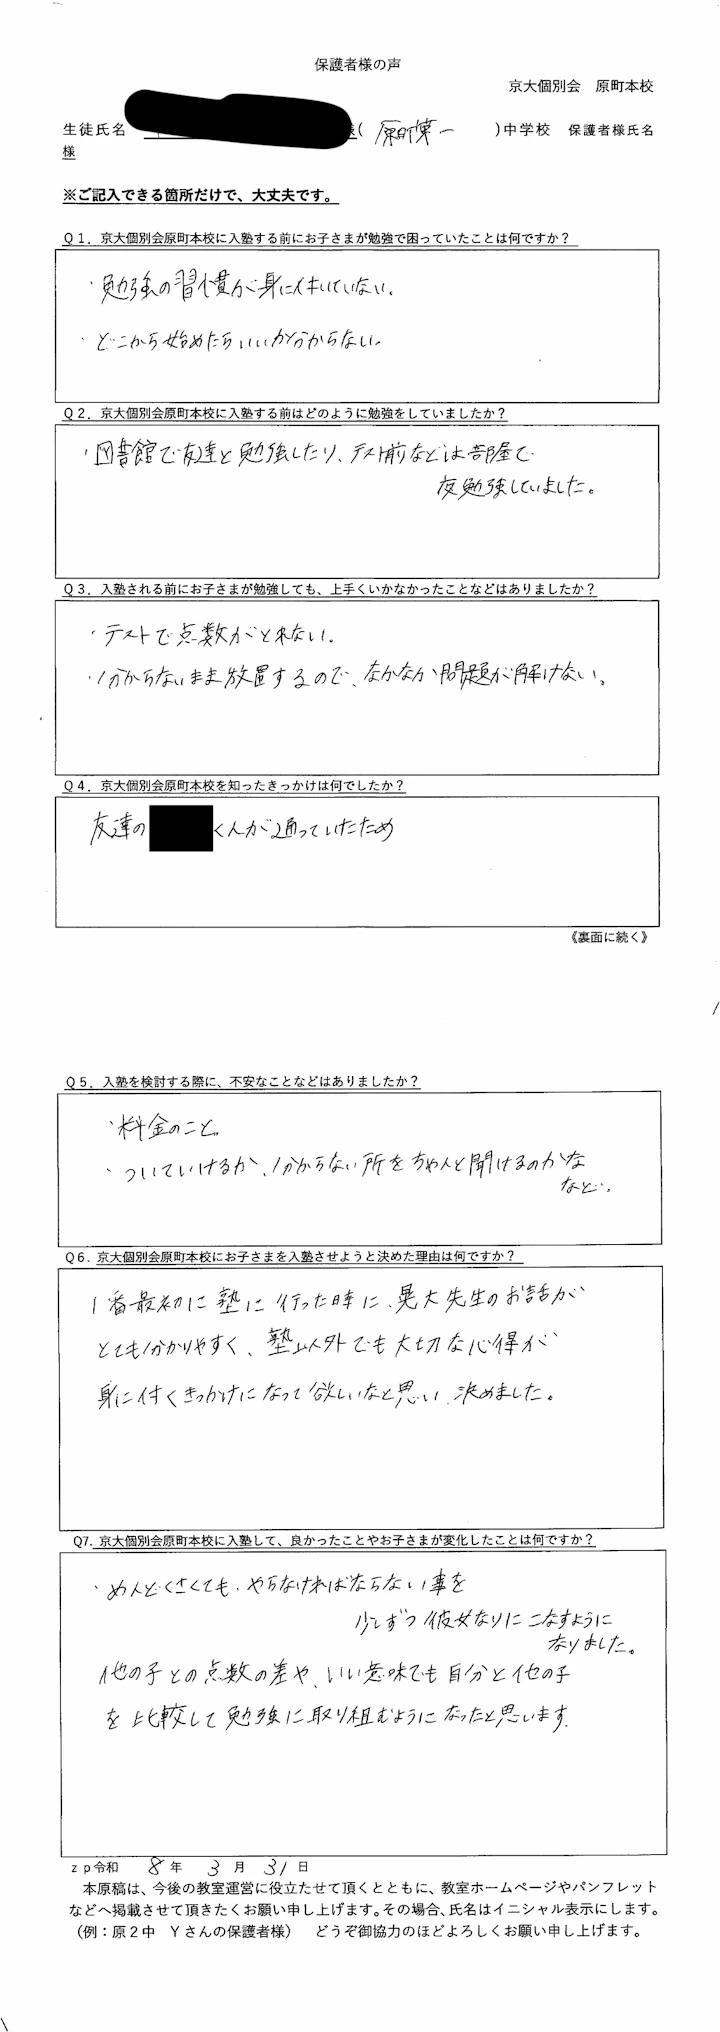 保護者様の声
京大個別会　原町本校
生徒氏名 様( 原町第一 )中学校　保護者様氏名
様
※ご記入できる箇所だけで、大丈夫です。
Q1．京大個別会原町本校に入塾する前にお子さまが勉強で困っていたことは何ですか？
・勉強の習慣が身に付いていない。
・どこから始めたらいいか分からない。
Q2．京大個別会原町本校に入塾する前はどのように勉強をしていましたか？
・図書館で友達と勉強したり、テスト前などは部屋で
夜勉強していました。
Q3．入塾される前にお子さまが勉強しても、上手くいかなかったことなどはありましたか？
・テストで点数がとれない。
・分からないまま放置するので、なかなか問題が解けない。
Q4．京大個別会原町本校を知ったきっかけは何でしたか？
友達の くんが通っていたため
《裏面に続く》
Q5．入塾を検討する際に、不安なことなどはありましたか？
・料金のこと。
・ついていけるか、分からない所をちゃんと聞けるのかな
など。
Q6．京大個別会原町本校にお子さまを入塾させようと決めた理由は何ですか？
1番最初に塾に行った時に、晃大先生のお話が
とても分かりやすく、塾以外でも大切な心得が
身に付くきっかけになって欲しいなと思い、決めました。
Q7．京大個別会原町本校に入塾して、良かったことやお子さまが変化したことは何ですか？
・めんどくさくても、やらなければならない事を
少しずつ彼女なりにこなすように
なりました。
他の子との点数の差や、いい意味でも自分と他の子
を比較して勉強に取り組むようになったと思います。
zp令和 8 年 3 月 31 日
本原稿は、今後の教室運営に役立たせて頂くとともに、教室ホームページやパンフレット
などへ掲載させて頂きたくお願い申し上げます。その場合、氏名はイニシャル表示にします。
（例：原２中　Ｙさんの保護者様）　どうぞ御協力のほどよろしくお願い申し上げます。